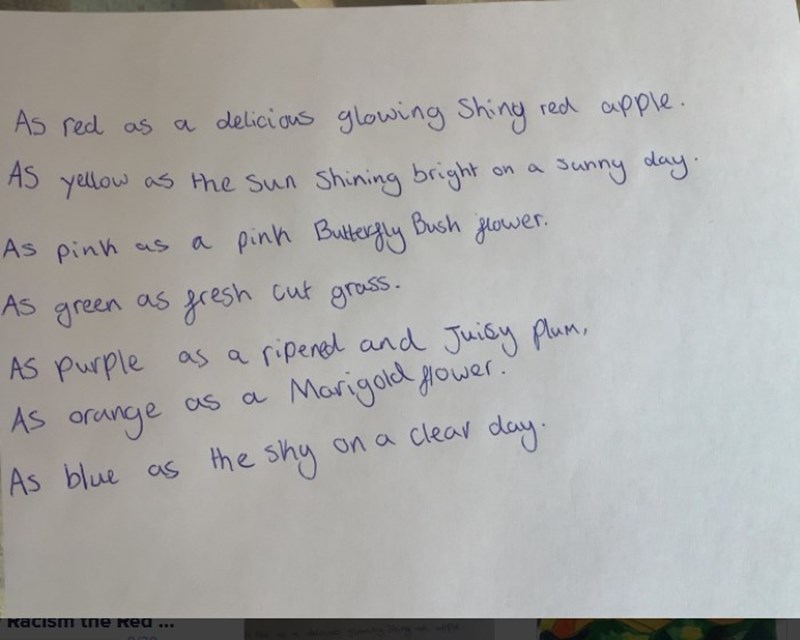 As red as a delicious glowing Shiny red apple.
As yellow as the Sun Shining bright on a sunny day.
As pink as a pink Butterfly Bush flower.
As green as fresh cut grass.
As purple as a ripened and Juisy plum.
As orange as a Marigold flower.
As blue as the sky on a clear day.
Racism the Red ...